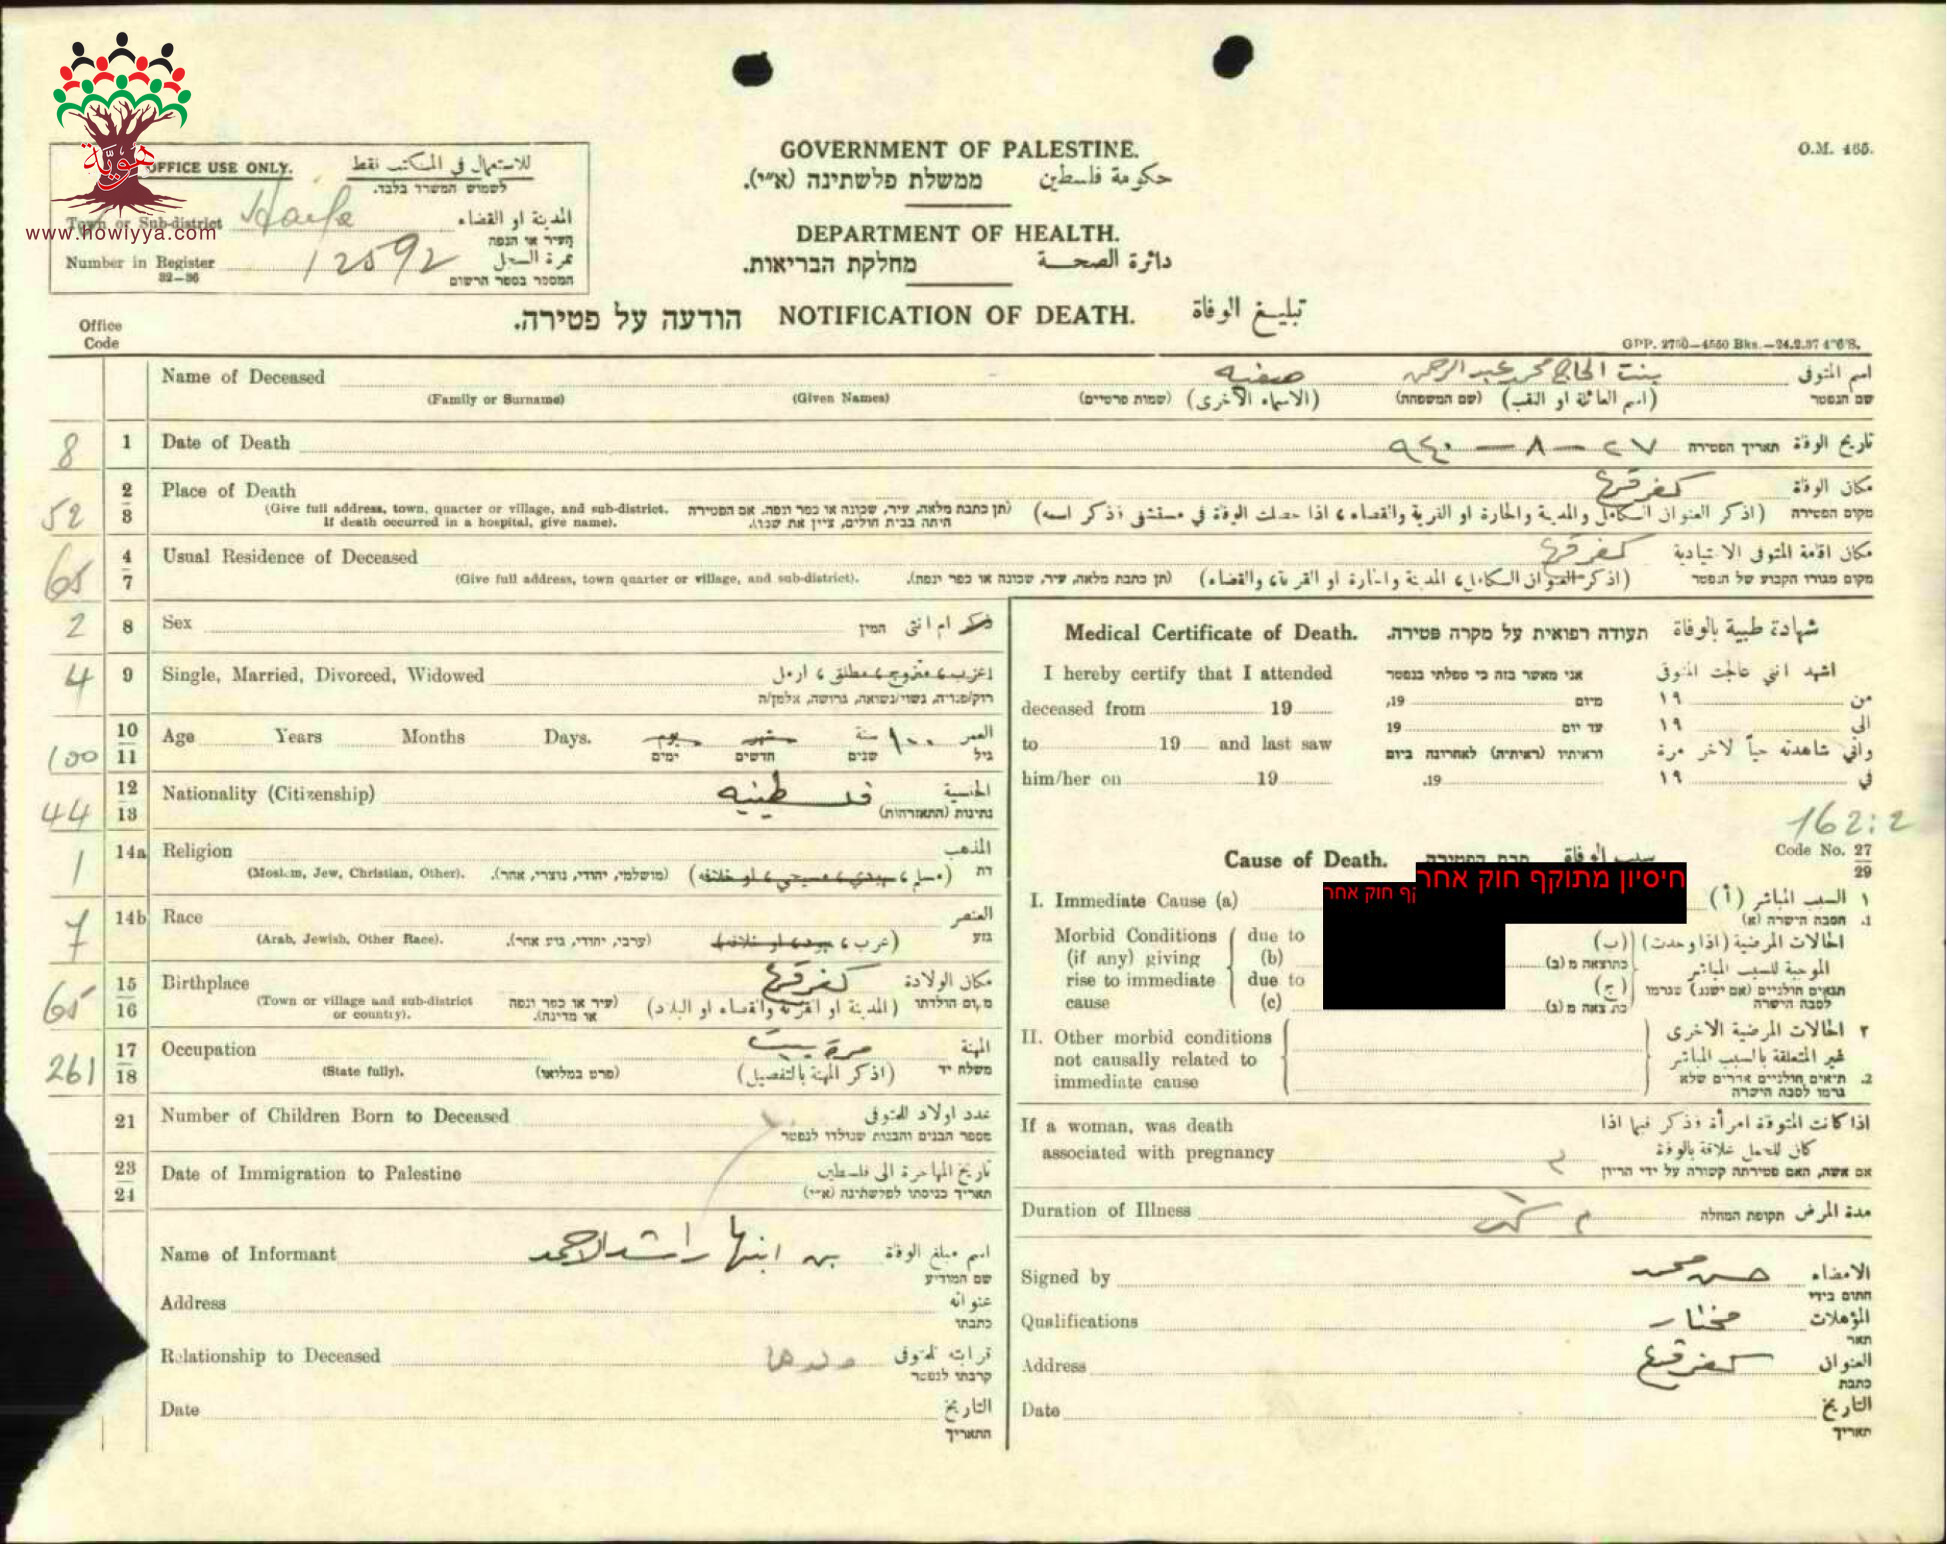 هويّة
www.howiyya.com
OFFICE USE ONLY. للاستعمال في المكتب فقط
לשמוש המשרד בלבד.
Town or Sub-district Haifa المدينة او القضاء
העיר או הנפה
Number in Register 12592 نمرة السجل
32–36 המספר בספר הרשום
O.M. 465.
GOVERNMENT OF PALESTINE.
حكومة فلسطين ממשלת פלשתינה (א״י).
DEPARTMENT OF HEALTH.
دائرة الصحة מחלקת הבריאות.
تبليغ الوفاة NOTIFICATION OF DEATH. הודעה על פטירה.
Office
Code
GPP. 2750—4550 Bks.—24.2.37
Name of Deceased صفيه بنت الحاج محمد عبد الرحمن اسم المتوفى
(Family or Surname) (Given Names) (שמות פרטיים) (الاسماء الاخرى) (שם המשפחה) (اسم العائلة او اللقب) שם הנפטר
8 1 Date of Death ٢٧ — ٨ — ٩٤٠ תאריך הפטירה تاريخ الوفاة
52 2 3 Place of Death كفر قرع مكان الوفاة
(Give full address, town, quarter or village, and sub-district. If death occurred in a hospital, give name).
(תן כתבת מלאה, עיר, שכונה או כפר ונפה. אם הפטירה היתה בבית חולים, ציין את שמו).
(اذكر العنوان الكامل والمدينة والحارة او القرية والقضاء، اذا حصلت الوفاة في مستشفى فذكر اسمه) מקום הפטירה
65 4 7 Usual Residence of Deceased كفر قرع مكان اقامة المتوفى الاعتيادية
(Give full address, town quarter or village, and sub-district). (תן כתבת מלאה, עיר, שכונה או כפר ונפה). (اذكر العنوان الكامل، المدينة والحارة او القرية، والقضاء) מקום מגורו הקבוע של הנפטר
2 8 Sex המין ذكر ام انثى
4 9 Single, Married, Divorced, Widowed اعزب، متزوج، مطلق، ارمل
רוק/פנויה, נשוי/נשואה, גרושה, אלמן/ה
100 10 11 Age Years Months Days. يوم شهر سنة ١٠٠ العمر
ימים חדשים שנים גיל
44 12 13 Nationality (Citizenship) فلسطينيه الجنسية
נתינות (התאזרחות)
1 14a Religion المذهب
(Moslem, Jew, Christian, Other). (מושלמי, יהודי, נוצרי, אחר). (مسلم، يهودي، مسيحي، او خلافه) דת
7 14b Race العنصر
(Arab, Jewish, Other Race). (ערבי, יהודי, גזע אחר). (عرب، يهود، او خلافه) גזע
65 15 16 Birthplace كفر قرع مكان الولادة
(Town or village and sub-district or country). (עיר או כפר ונפה או מדינה). (المدينة او القرية والقضاء او البلاد) מקום הולדתו
261 17 18 Occupation مرة بيت المهنة
(State fully). (פרט במלואו) (اذكر المهنة بالتفصيل) משלח יד
21 Number of Children Born to Deceased عدد اولاد المتوفى
מספר הבנים והבנות שנולדו לנפטר
23 24 Date of Immigration to Palestine تاريخ المهاجرة الى فلسطين
תאריך כניסתו לפלשתינה (א״י)
Name of Informant من ابنها راشد الاحمد اسم مبلغ الوفاة
שם המודיע
Address عنوانه
כתבתו
Relationship to Deceased ولدها قرابته للمتوفى
קרבתו לנפטר
Date التاريخ
התאריך
Medical Certificate of Death. תעודה רפואית על מקרה פטירה. شهادة طبية بالوفاة
I hereby certify that I attended אני מאשר בזה כי טפלתי בנפטר اشهد انني عالجت المتوفى
deceased from 19 19, מיום ١٩ من
to 19 and last saw 19 עד יום ١٩ الى
him/her on 19 וראיתיו (ראיתיה) לאחרונה ביום واني شاهدته حياً لآخر مرة
19. ١٩ في
162:2
Code No. 27 29
Cause of Death. סבת הפטירה سبب الوفاة
חיסיון מתוקף חוק אחר
קף חוק אחר
I. Immediate Cause (a) (أ) السبب المباشر ١
הסבה הישרה (א) 1.
Morbid Conditions (if any) giving rise to immediate cause due to (b) due to (c)
(ب) الحالات المرضية (اذا وجدت)
כתוצאה מ (ב) الموجبة للسبب المباشر
(ج) תנאים חולניים (אם ישנם) שגרמו
כתוצאה מ (ג) לסבה הישרה
II. Other morbid conditions not causally related to immediate cause
٢ الحالات المرضية الاخرى
غير المتعلقة بالسبب المباشر
2. תנאים חולניים אחרים שלא
גרמו לסבה הישרה
If a woman, was death اذا كانت المتوفاة امرأة فذكر فيما اذا
associated with pregnancy كان للحمل علاقة بالوفاة
אם אשה, האם פטירתה קשורה על ידי הריון
Duration of Illness תקופת המחלה مدة المرض
Signed by حسن محمد الامضاء
חתום בידי
Qualifications مختار المؤهلات
תאר
Address كفر قرع العنوان
כתבת
Date التاريخ
תאריך